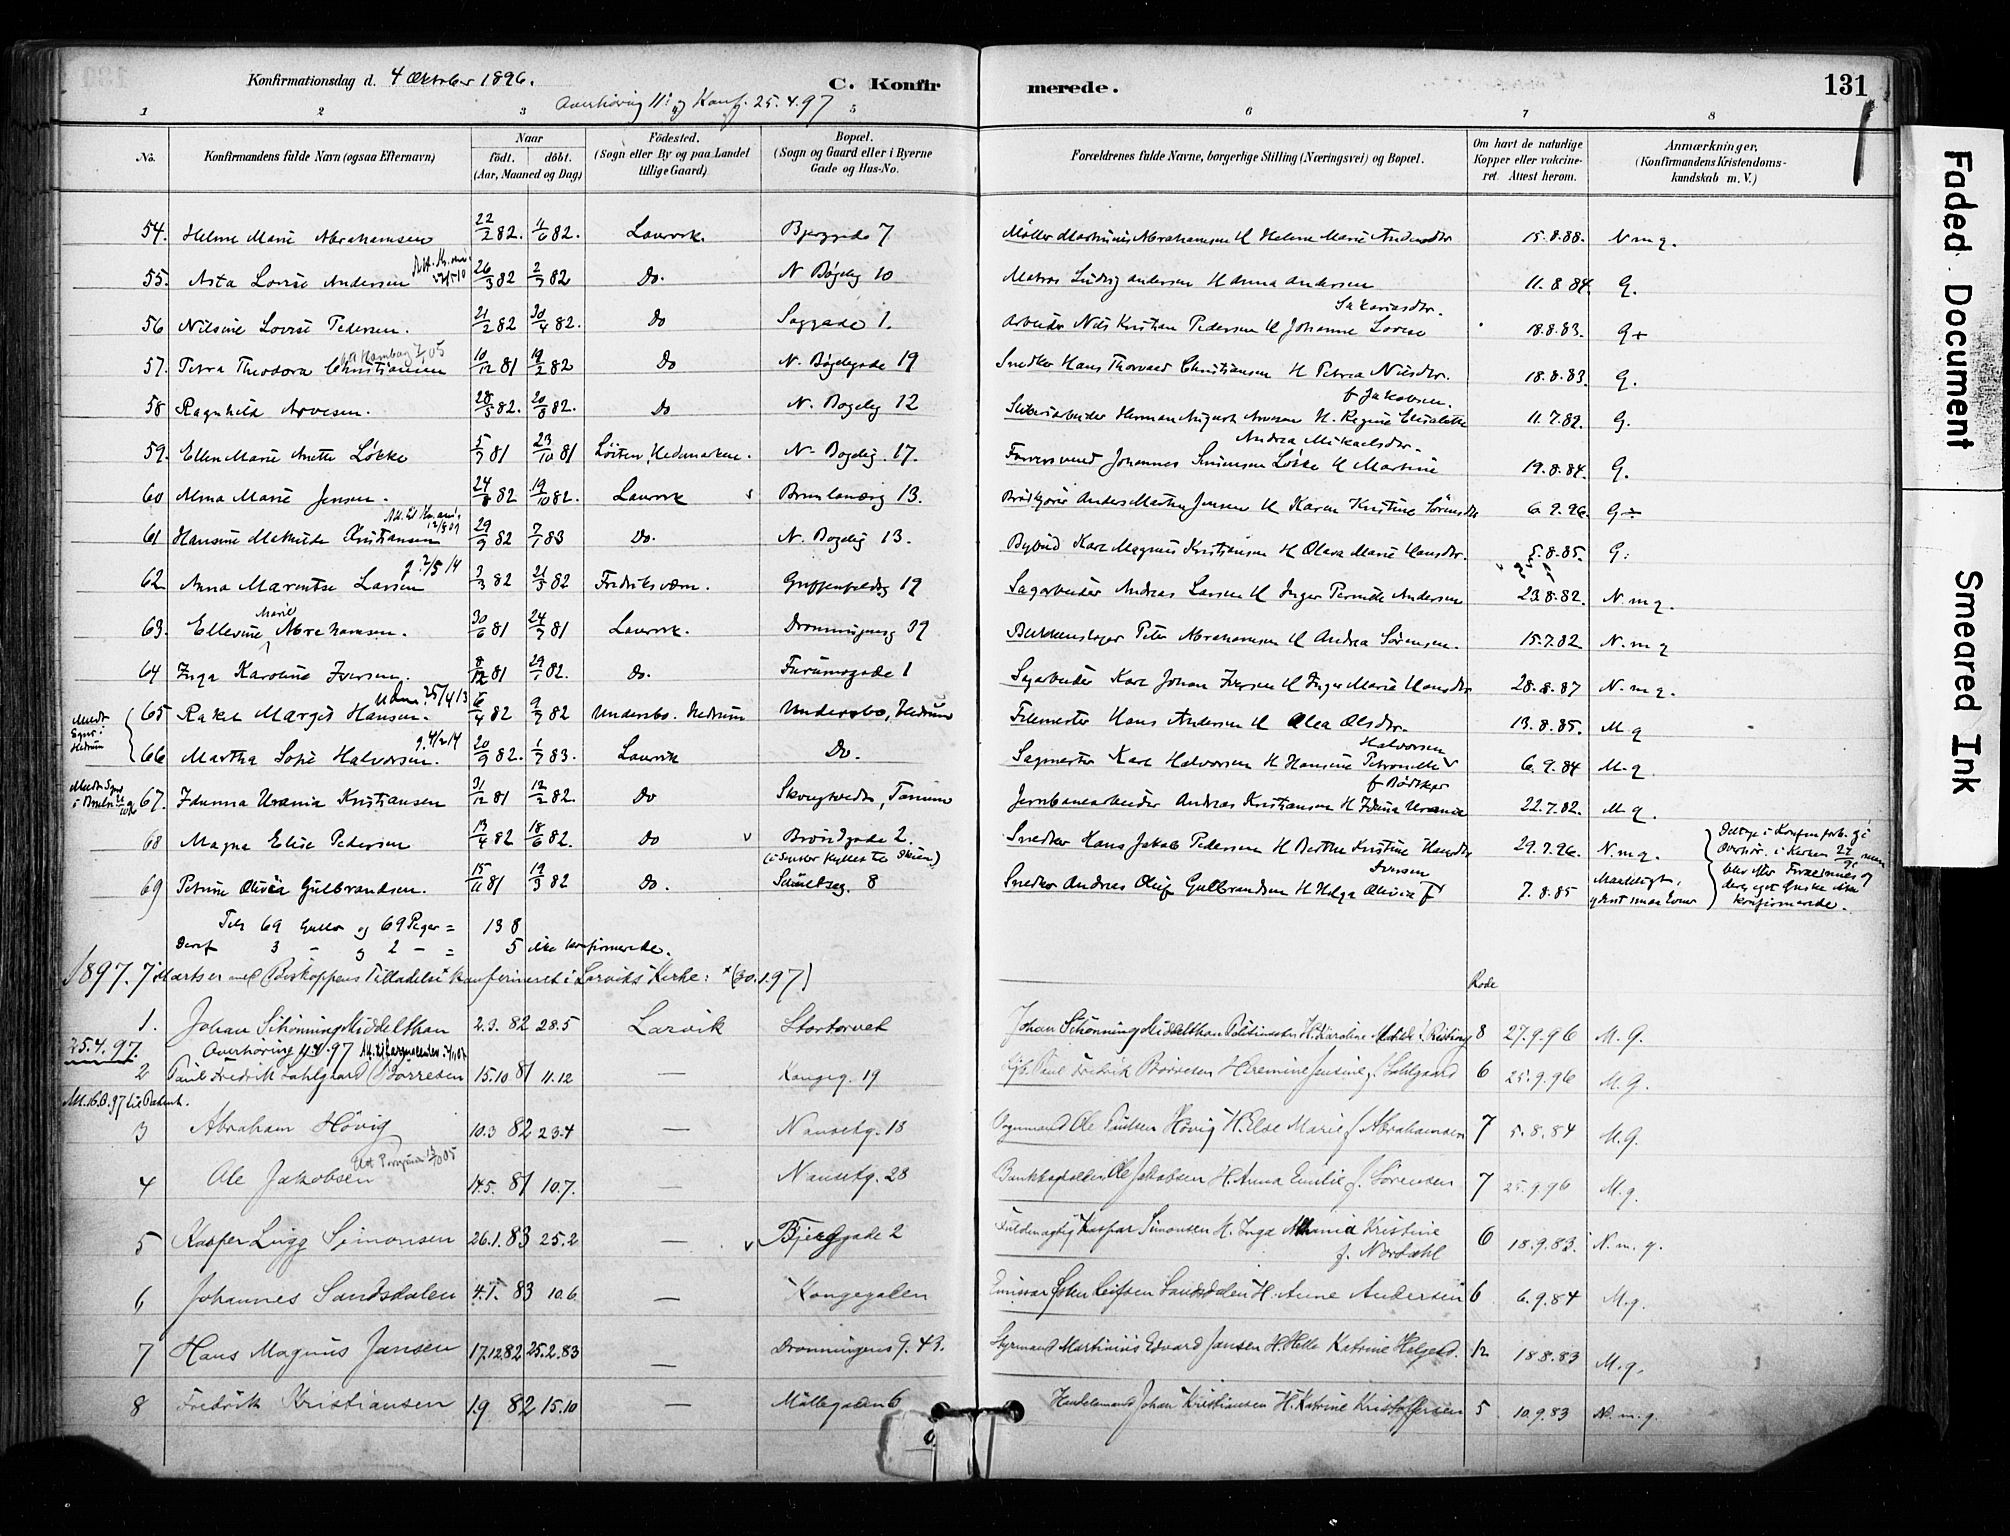 Konfirmationsdag d. 4 Oktober 1896.
C. Konfirmerede.
131
Overhöring 11: og Konf. 25.4.97
1 2 3 5 6 7 8
No.
Konfirmandens fulde Navn (ogsaa Efternavn)
Naar
födt. döbt.
(Aar, Maaned og Dag)
Födested.
(Sogn eller By og paa Landet tillige Gaard)
Bopæl.
(Sogn og Gaard eller i Byerne Gade og Hus-No.
Forældrenes fulde Navne, borgerlige Stilling (Næringsvei) og Bopæl.
Om havt de naturlige Kopper eller vakcineret. Attest herom.
Anmærkninger,
(Konfirmandens Kristendomskundskab m. V.)
54. Helene Marie Abrahamsen 22/2 82. 82. Laurvik. Bjerggade 7 Møller Martinius Abrahamsen H Helene Marie 15.8.88. N.m.g.
55. Asta Lovise Andersen 26/3 82 2/7 82 Do. N Bøgelg 10 Matros Ludvig Andersen H Anna Andersen 11.8 84. G.
56 Nilsine Lovise Pedersen. 21/2 82 30/4 82. Do Saggade 1. Arbeider Nils Kristian Pedersen H Johanne Lovise Sakariasdtr. 18.8.83. G+
57. Petra Theodora Christiansen 10/12 81 19/2 82 Do N. Bøgelgade 19 Snedker Hans Thorvald Christiansen H Petrea Nilsdtr. 18.8.83. G.
58 Ragnhild Arvesen. 28/5 82. 20/8 82. Do N. Bøgelg 12 Herman August Arvesen H. Regine Elisabeth f Jakobsen. 11.7.82. G.
59. Ellen Marie Anette Løkke 5/9 81 23/10 81 Löiten, Hedemarken. N. Bøgelg. 17. Farversvend Johannes Simensen Løkke H Martine Andrea Mikaelsdtr. 19.8.84. G.
60 Alma Marie Jensen. 24/8 82 19/10 82. Laurvik Brunlanæsg 13. Anders Martin Jensen H Karen Kristine Sørensdtr 6.9.96. G
61 Hansine Mathilde Kristiansen 29/9 82 7/1 83 Do. N. Bogelg 13. Bybud Karl Magnus Kristiansen H Olava Marie Hansdtr. 5.8.85. G:
62 Anna Marentse Larsen 3/3 82 21/5 82 Fredriksværn. Griffenfeldtsg 19 Sagarbeider Andreas Larsen H Inger Pernille Andersen 23.8.82. N.m.g.
63. Ellevine Marie Abrahamsen. 30/6 81 24/9 81 Laurvik. Dronningensg 39 Peter Abrahamsen H Andrea Sørensen. 15.7.82 N.m g
64 Inga Karoline Iversen. 8/12 81 29/1 82. Do. Farumsgade 1 Sagarbeider Karl Johan Iversen H Inger Marie Hansdtr 28.8.87 N.m.g.
65 Rakel Margit Hansen. 6/4 82 9/7 82 Undersbo. Hedrum Undersbo, Hedrum Hans Andersen H Olea Olsdtr. 13.8.85. M g
66 Martha Sofie Halvorsen. 20/9 82. 1/7 83. Laurvik Do. Sagmester Karl Halvorsen H Hansine Petronelle Halvorsen 6.9.84 M.g.
67. Idunna Urania Kristiansen 31/12 81 12/2 82. Do Tanum Jernbanearbeider Andreas Kristiansen H Idunna Urania f Bødtker 22.7.82. M g.
68 Magna Elise Pedersen 13/4 82 18/6 82. Do Brændgade 2 Snedker Hans Jakob Pedersen H Berthe Kristine Hansdtr 29.9.96. N.m g.
69 Petrine Olivia Gulbrandsen. 15/11 81 19/3 82 Do. Schultzeg. 8 Snedker Andreas Oluf Gulbrandsen H Helga Olivia f Iversen 7.8.85
Tils 69 Gutter og 69 Piger = 138
Deraf 3 - og 2 - = 5 ikke konfirmerede.
1897. 7 Marts er med Biskoppens Tilladelse* konfirmeret i Larviks Kirke: *(30.1.97)
Rode
1. Johan Schønning Middelthon 2.3. 82 28.5 Larvik Stortorvet Johan Schønning Middelthon Politimester H. Karoline 8 27.9.96 M.G.
25.4.97. Overhøring 11.4.97
2 Paul Fredrik Sahlgaard Borresen 15.10 81 11.12 — Kongeg. 19 Paul Fredrik Børresen Hermine Jensine f. Sahlgaard 6 25.9.96 M.G.
3 Abraham Høvig 10.3 82 23.4 — Nansetg. 18 Vognmand Ole Paulsen Høvig H. Else Marie f Abrahamsen 7 5.8.84 M.G.
4 Ole Jakobsen 14.5. 81 10.7. — Nansetg. 28 Ole Jakobsen H. Anna Emilie f. Sørensen 7 25.9.96 M.g.
5 Kasper Lugg Simonsen 26.1.83 25.2 — Bjerggade 2 Fuldmægtig Kaspar Simonsen H. Inga Kristine f. Nordahl 6 18.9.83. N.m.g.
6 Johannes Sandsdalen 4.1. 83 10.6. — Kongegaden Sandsdalen H. Anne Andersen 6 6.9.84 M.g.
7 Hans Magnus Jansen 17.12.82 25.2.83 — Dronningens g. 43. Styrmand Martinius Edvard Jansen H. Helle Katrine Helgesd. 12 18.8.83 M.g.
8 Fredrik Kristiansen 1.9 82 15.10 — Møllegaden 6 Handelsmand Johan Kristiansen H. Katrine Kristoffersen 5 10.9.83 N.m.g.
Faded Document
Smeared Ink